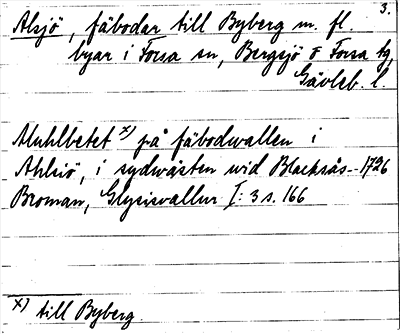 3.
Alsjö, fäbodar till Byberg m. fl.
byar i Forsa sn, Bergsjö o Forsa tg,
Gävleb. l.
Muhlbetet x) på fäbodwallen i
Ahlsiö, i sydwästen wid Blacksås- 1726
Broman, Glysisvallur I: 3 s. 166
x) till Byberg.